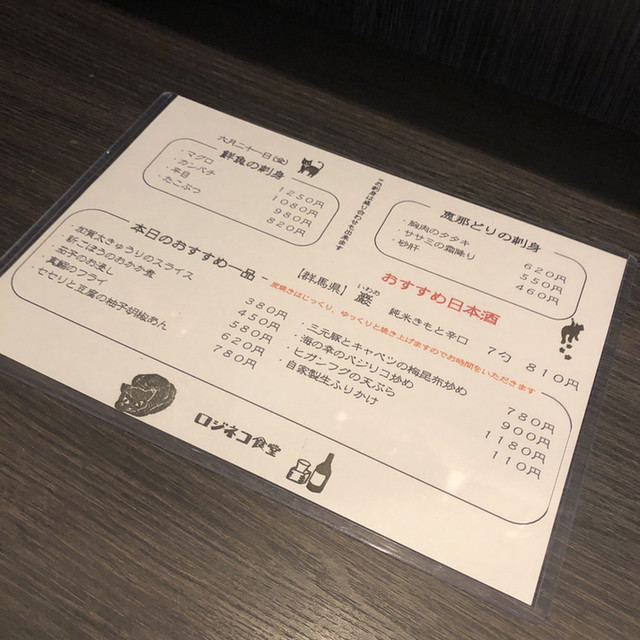 六月二十一日(金)
鮮魚の刺身
・マグロ 1250円
・カンパチ 1080円
・平目 980円
・たこぶつ 820円
この刺身は盛り合わせも出来ます
恵那どりの刺身
・胸肉のタタキ 620円
・ササミの霜降り 550円
・砂肝 460円
おすすめ日本酒
【群馬県】 巌 いわお 純米きもと辛口 7勺 810円
- 本日のおすすめ一品 -
炭焼きはじっくり、ゆっくりと焼き上げますのでお時間をいただきます
・加賀太きゅうりのスライス 380円
・新ごぼうのおかか煮 450円
・茄子のお浸し 580円
・真鯛のフライ 620円
・セセリと豆腐の柚子胡椒あん 780円
・三元豚とキャベツの梅昆布炒め 780円
・海の幸のバジリコ炒め 900円
・ヒガンフグの天ぷら 1180円
・自家製生ふりかけ 110円
ロジネコ食堂